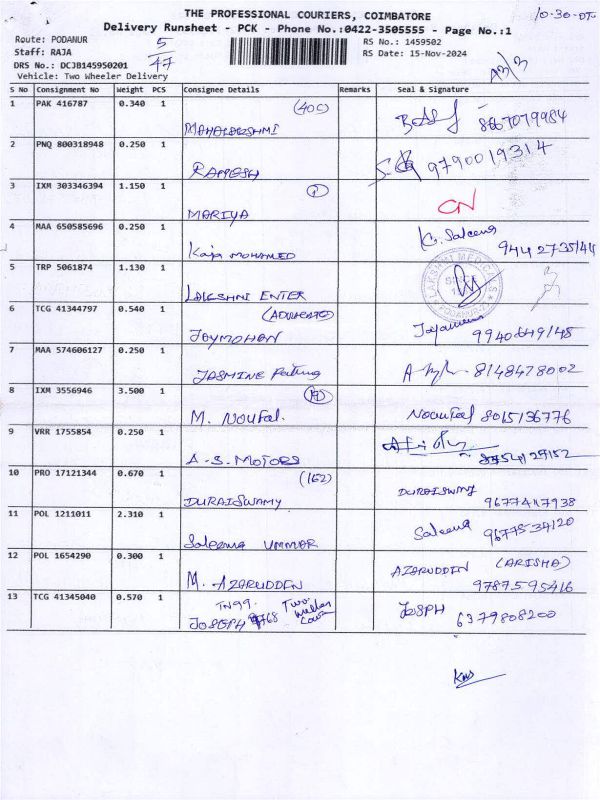 THE PROFESSIONAL COURIERS, COIMBATORE
10-30-
Delivery Runsheet - PCK - Phone No.:0422-3505555 - Page No.:1
Route: PODANUR
5/47
RS No.: 1459502
Staff: RAJA
RS Date: 15-Nov-2024
DRS No.: DCJB145950201
Vehicle: Two Wheeler Delivery
S No Consignment No Weight PCS Consignee Details Remarks Seal & Signature
1 PAK 416787 0.340 1 (40C)
MAHALAKSHMI 8667079984
2 PNQ 800318948 0.250 1
RAMESH 9790019314
3 IXM 303346394 1.150 1
MARIYA CN
4 MAA 650585696 0.250 1
Kaja MOHAMED K. Saleena
5 TRP 5061874 1.130 1
LAKSHMI ENTER LAKSHMI MEDICALS
6 TCG 41344797 0.540 1 (ADVOCATE)
JOYMOHAN
7 MAA 574606127 0.250 1
JASMINE 8148478002
8 IXM 3556946 3.500 1
M. Noufal. Noufal 8015136776
9 VRR 1755854 0.250 1
A.S. MOTORS
10 PRO 17121344 0.670 1 (162)
DURAISWAMY DURAISWAMY 9677417938
11 POL 1211011 2.310 1
Saleema UMMAR Saleena 9677534120
12 POL 1654290 0.300 1
M. AZARUDDEN AZARUDDEN (ARISHA)
9787595416
13 TCG 41345040 0.570 1 TN99.
JOSEPH JOSPH 6379808200